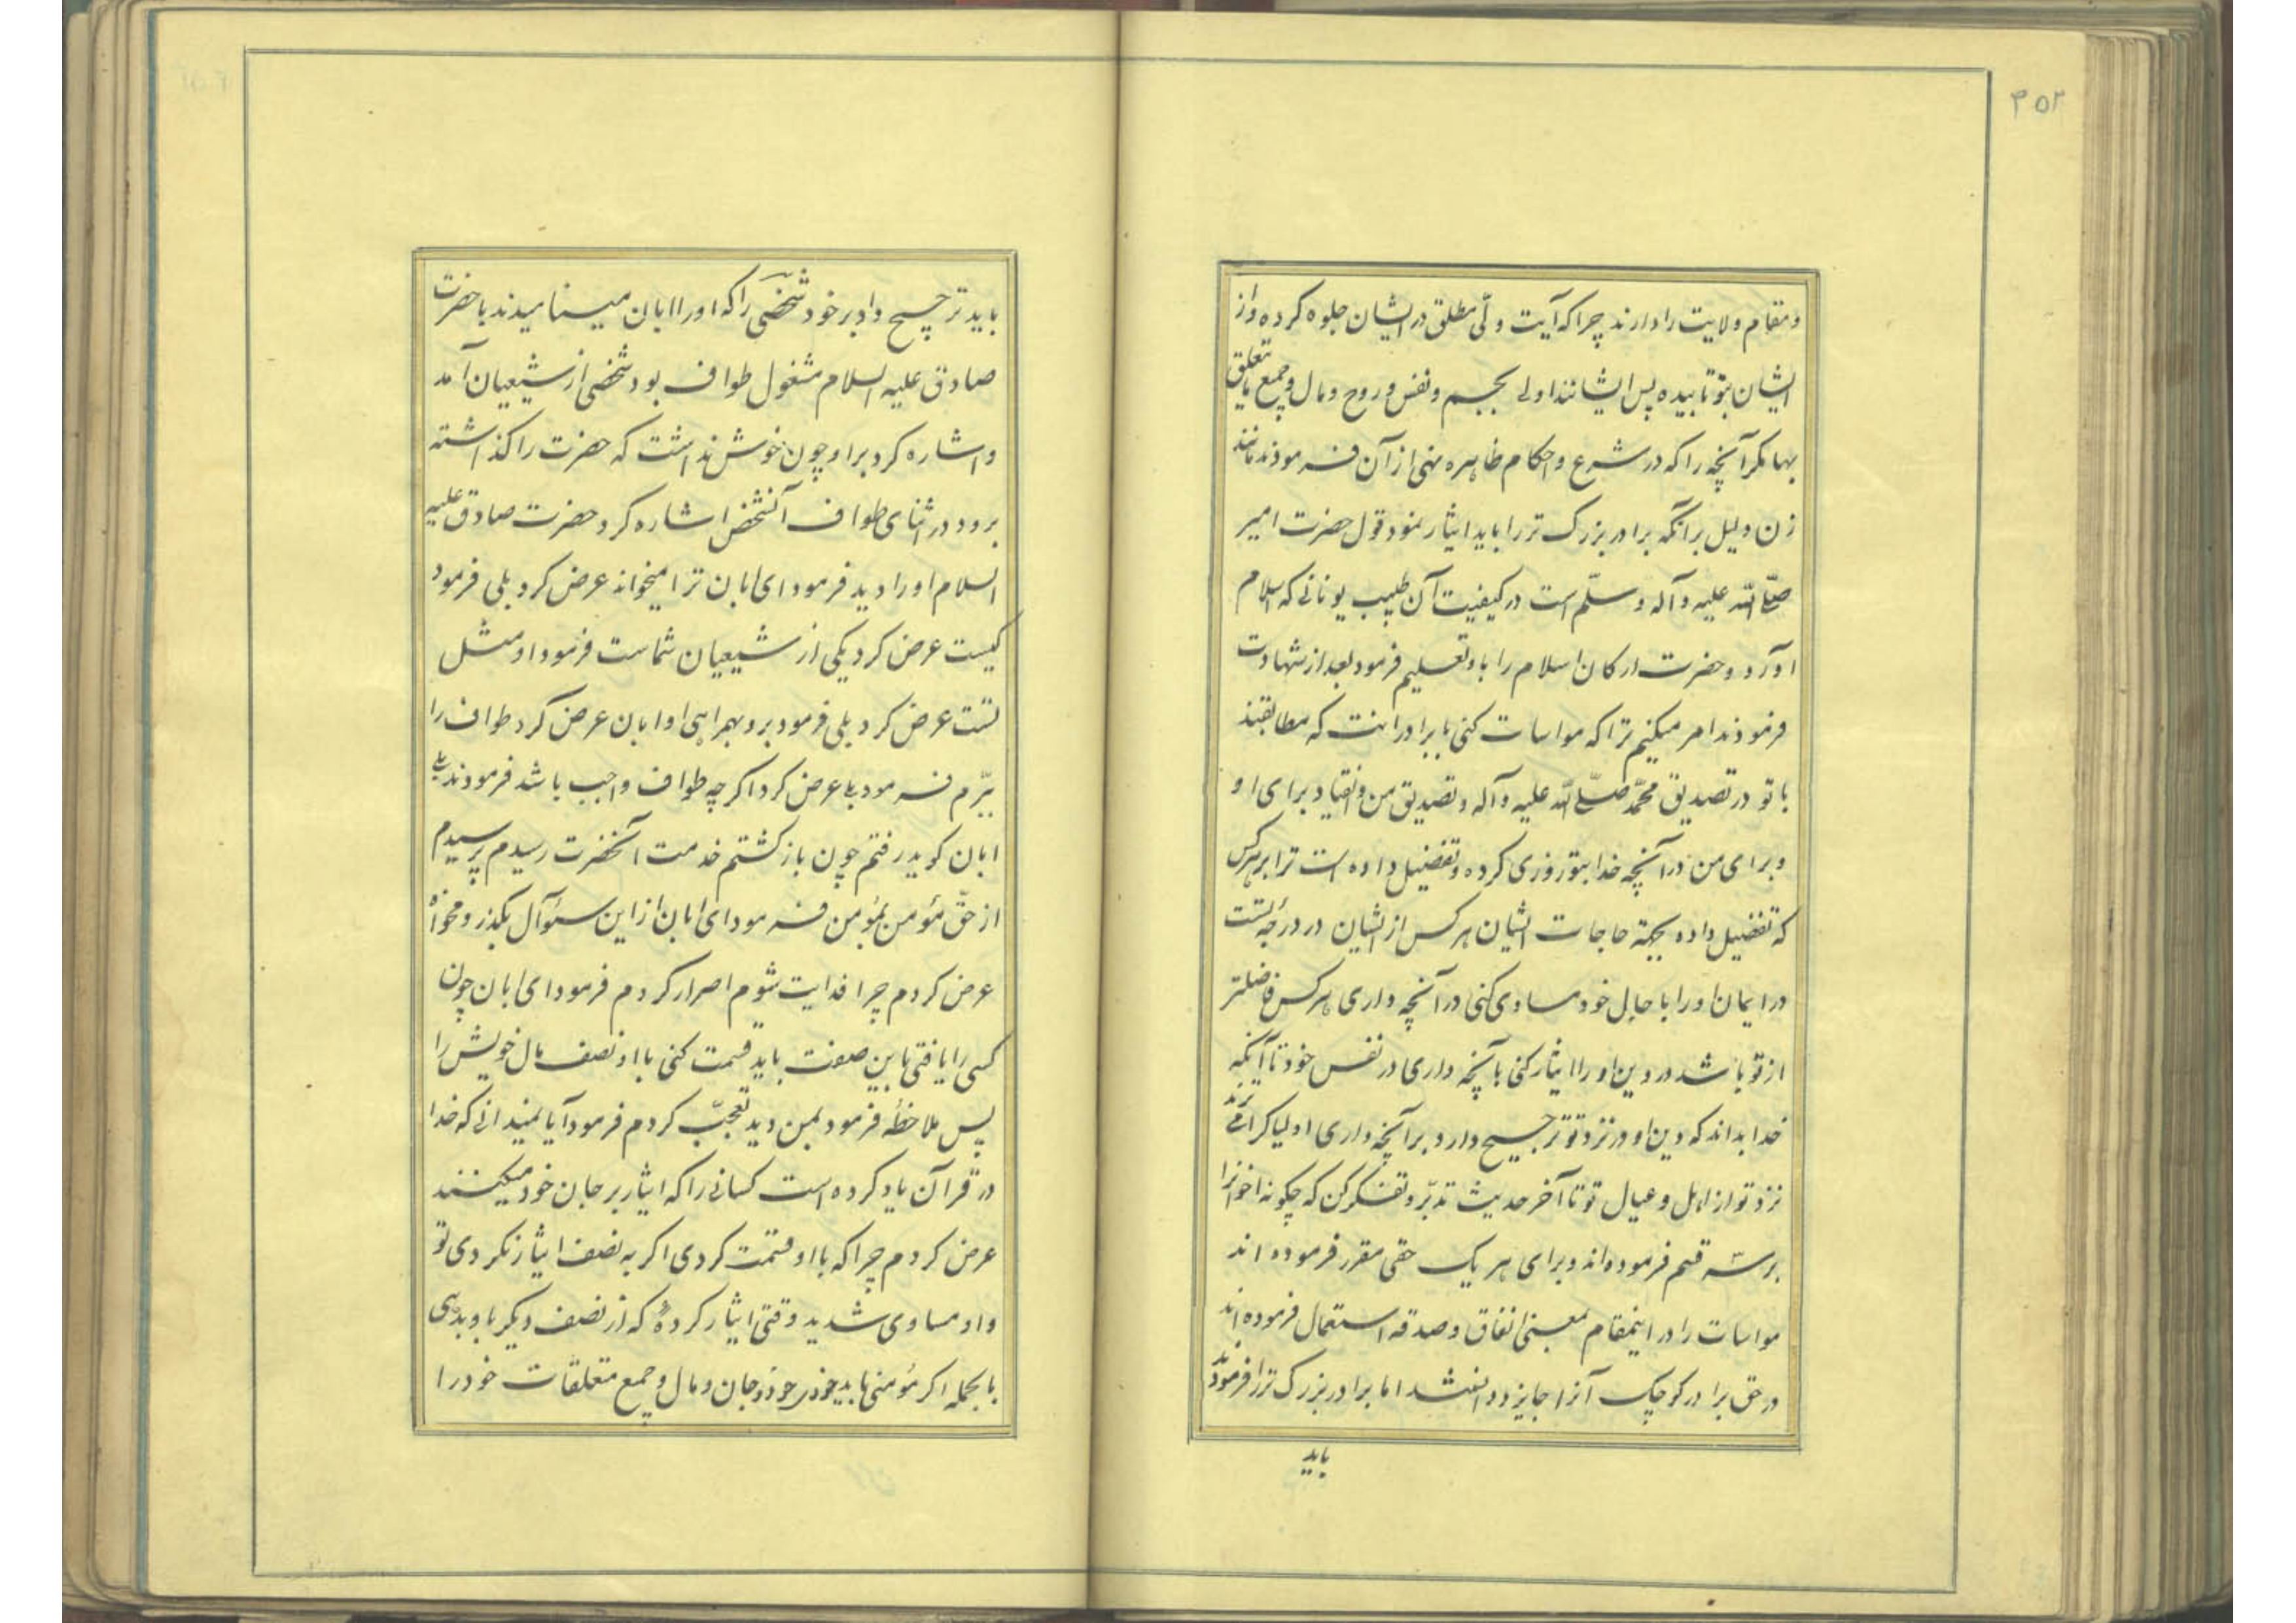 ۳۵۲
و مقام ولایت را دارند چرا که آیت ولی مطلق در ایشان جلوه کرده و از
ایشان بتو تابیده پس ایشانند اولی بجسم و نفس و روح و مال و جمیع ما یتعلق
بها مکر آنچه را که در شرع و احکام ظاهره نهی از آن فرمودند مانند
زن و لیل بر آنکه برادر بزرک تر را باید ایثار نمود قول حضرت امیر
صلّی اللّه علیه و آله و سلّم است در کیفیت آن طبیب یونانی که اسلام
آورد و حضرت ارکان اسلام را باو تعلیم فرمود بعد از شهادت
فرمودند امر میکنم ترا که مواسات کنی با برادرانت که مطابقند
با تو در تصدیق محمّد صلّی اللّه علیه و آله و تصدیق من و انقیاد برای او
و برای من در آنچه خدا بتو روزی کرده و تفضیل داده است ترا بر هر کس
که تفضیل داده بجهة حاجات ایشان هر کس از ایشان در درجهٔ تست
در ایمان او را با حال خود مساوی کنی در آنچه داری هر کس فاضلتر
از تو باشد در دین او را ایثار کنی بآنچه داری در نفس خود تا آنکه
خدا بداند که دین او در نزد تو ترجیح دارد بر آنچه داری اولیا کرامی ترند
نزد تو از اهل و عیال تو تا آخر حدیث تدبّر و تفکر کن که چکونه اخوانرا
بر سه قسم فرموده‌اند و برای هر یک حقی مقرر فرموده اند
مواسات را در اینمقام بمعنی انفاق و صدقه استعمال فرموده اند
در حق برادر کوچک آنرا جایز دانستند اما برادر بزرک تر را فرمودند
باید
باید ترجیح داد بر خود شخصی را که او را ابان مینامیدند با حضرت
صادق علیه السلام مشغول طواف بود شخصی از شیعیان آمد
و اشاره کرد بر او چون خوش نداشت که حضرت را کذاشته
برود در اثنای طواف آنشخص اشاره کرد حضرت صادق علیه
السلام او را دید فرمود ای ابان ترا میخواند عرض کرد بلی فرمود
کیست عرض کرد یکی از شیعیان شماست فرمود او مثل
تست عرض کرد بلی فرمود برو بهمراهی او ابان عرض کرد طواف را
ببرّم فرمود بلی عرض کرد اکر چه طواف واجب باشد فرمودند بلی
ابان کوید رفتم چون باز کشتم خدمت آنحضرت رسیدم پرسیدم
از حقّ مؤمن بمؤمن فرمود ای ابان از این سئوال بکذر و مخواه
عرض کردم چرا فدایت شوم اصرار کردم فرمود ای ابان چون
کسی را یافتی باین صفت باید قسمت کنی با او نصف مال خویش را
پس ملاحظهٔ فرمود بمن دید تعجّب کردم فرمود آیا نمیدانی که خدا
در قرآن یاد کرده است کسانی را که ایثار بر جان خود میکنند
عرض کردم چرا که با او قسمت کردی اکر به نصف ایثار نکردی تو
و او مساوی شدید وقتی ایثار کردهٔ که از نصف دیکر باو بدهی
بالجمله اکر مؤمنی باید خودی خود و جان و مال و جمیع متعلقات خود را